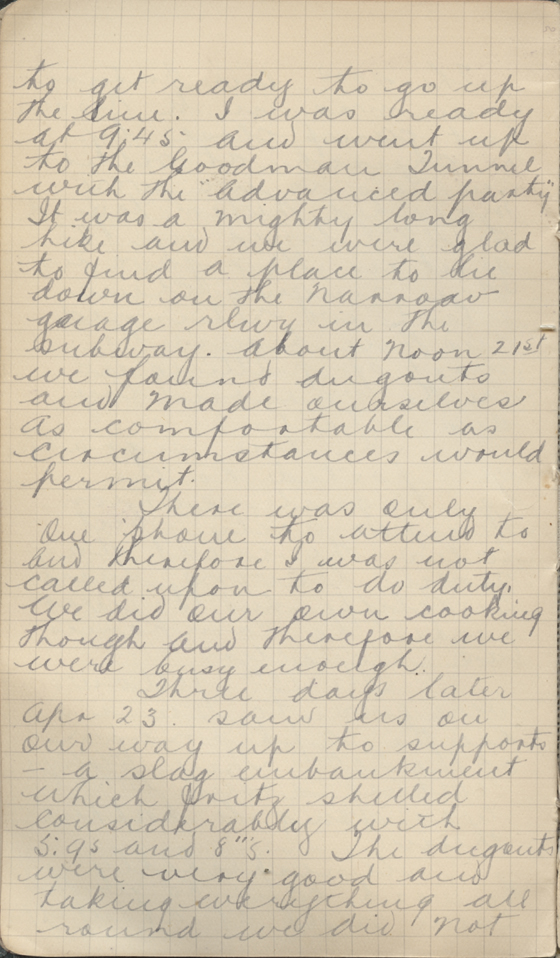 to get ready to go up
the line. I was ready
at 9:45 and went up
to the Goodman Tunnel
with the "advanced party"
It was a mighty long
hike and we were glad
to find a place to lie
down on the narroow
guage rlwy in the
subway. About noon 21st
we found dugouts
and made ourselves
as comfortable as
circumstances would
permit.
There was only
one phone to attend to
and therefore I was not
called upon to do duty.
We did our own cooking
though and therefore we
were busy enough.
Three days later
Apr 23. saw us on
our way up to supports
- a slag embankment
which Fritz shelled
considerably with
5.9s and 8"s. The dugouts
were very good and
taking everything all
round we did not